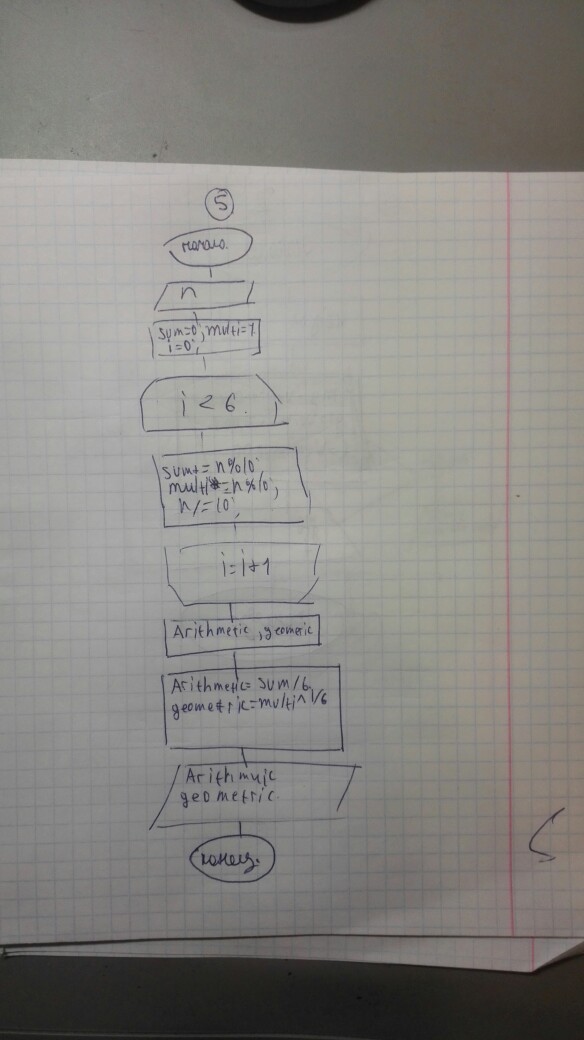 5
начало.
n
sum=0; multi=1
i=0;
i < 6.
sum+= n%10;
multi*=n%10;
n/=10;
i=i+1
Arithmetic, geometric
Arithmetic= sum/6,
geometric=multi^1/6
Arithmetic
geometric.
конец.